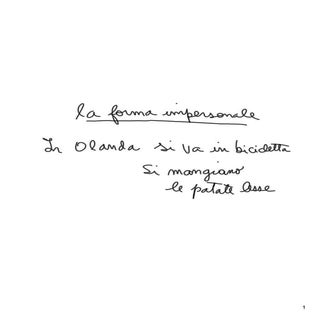 la forma impersonale
In Olanda si va in bicicletta
si mangiano
le patate lesse
1